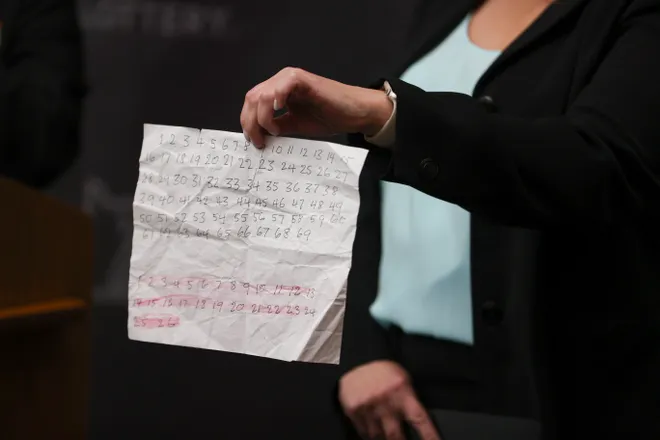 LOTTERY
1 2 3 4 5 6 7 8 9 10 11 12 13 14 15
16 17 18 19 20 21 22 23 24 25 26 27
28 29 30 31 32 33 34 35 36 37 38
39 40 41 42 43 44 45 46 47 48 49
50 51 52 53 54 55 56 57 58 59 60
61 62 63 64 65 66 67 68 69
1 2 3 4 5 6 7 8 9 10 11 12 13
14 15 16 17 18 19 20 21 22 23 24
25 26